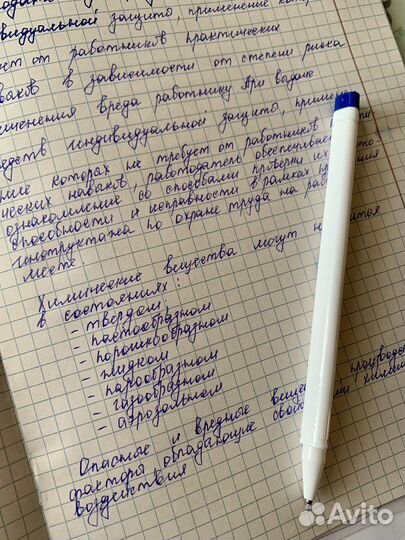 видуальной защиты, применение
ет от работников практических
выков в зависимости от степени риска
инения вреда работнику. При выдаче
едств индивидуальной защиты,
ние которых не требует от работников
ческих навыков, работодатель обеспечивает
ознакомление со способами проверки их
способности и исправности в рамках
инструктажа по охране труда на
месте.
Химические вещества могут
в состояниях:
- твердом
- пастообразном
- порошкообразном
- жидком
- парообразном
- газообразном
- аэрозольном
Опасные и вредные
факторы, обладающие
воздействия
Avito